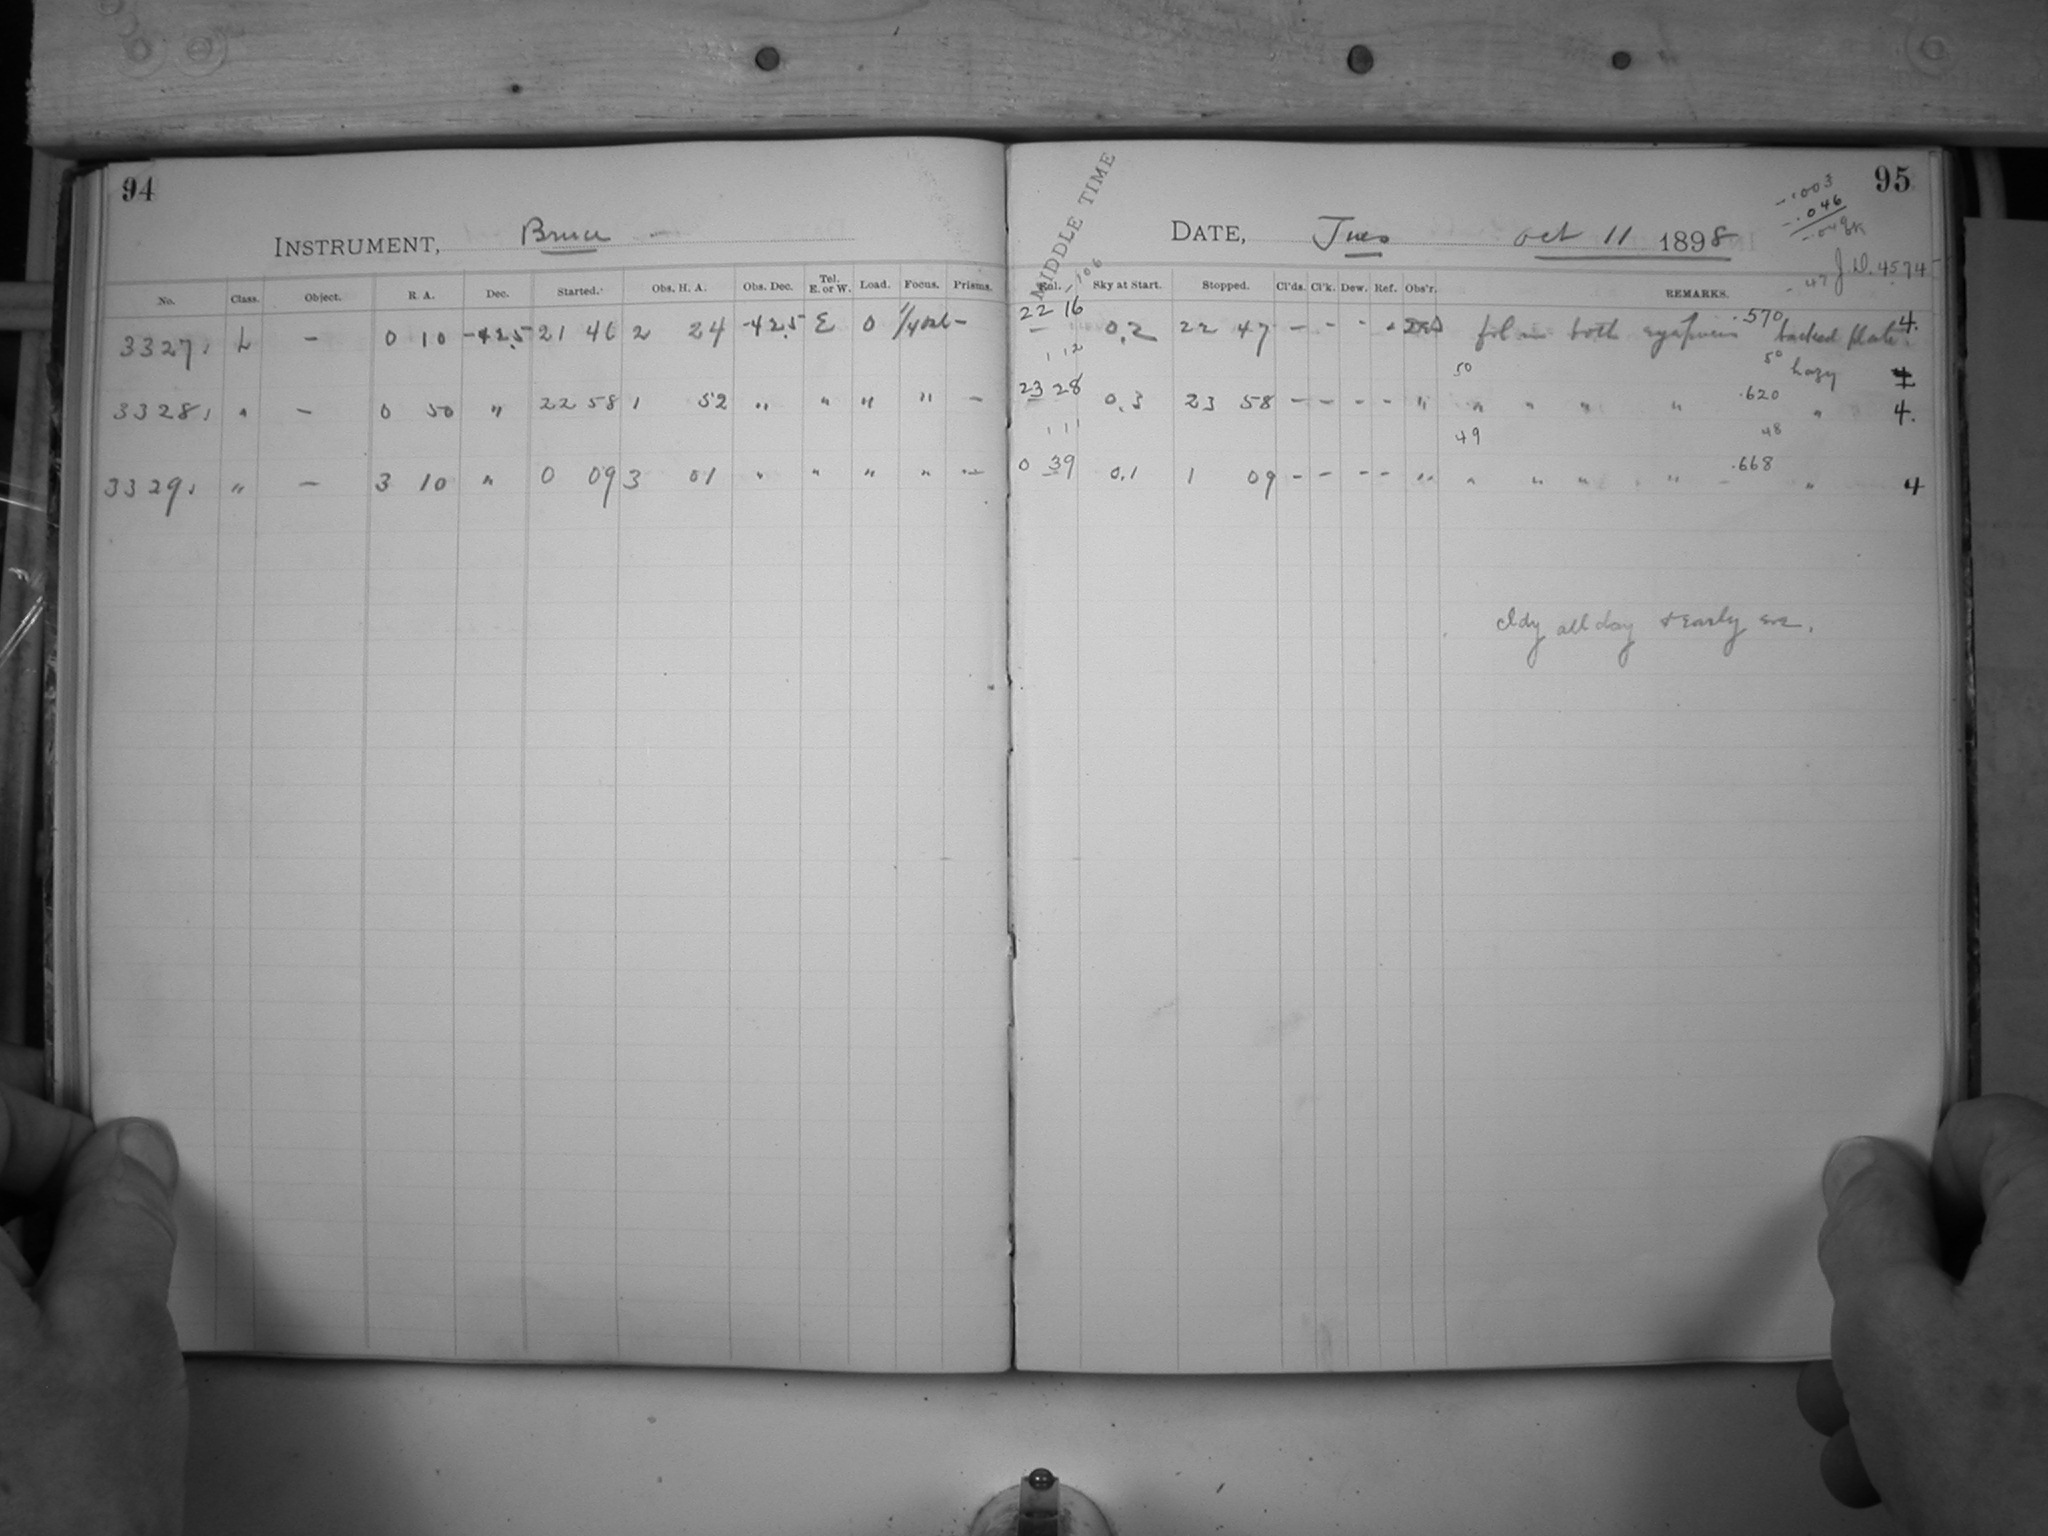 94
INSTRUMENT, Bruce
No. Class. Object. R. A. Dec. Started. Obs. H. A. Obs. Dec. Tel. E. or W. Load. Focus. Prisms.
3327. L — 0 10 -42.5 21 46 2 24 -42.5 E 0 —
3328. " — 0 50 " 22 58 1 52 " " " " —
3329. " — 3 10 " 0 09 3 01 " " " " —
95
MIDDLE TIME
-.106
-.003
-.046
DATE, Tues Oct 11 1898
J.D. 4574
-.47
Rol. Sky at Start. Stopped. Cl'ds. Cl'k. Dew. Ref. Obs'r. REMARKS.
22 16 0.2 22 47 — - - - in both .570 backed plate. 4.
1 12 50 50 hazy
23 28 0.3 23 58 — - - - " " " " " .620 " 4.
1 11 49 48
0 39 0.1 1 09 - - - - " " " " " .668 " 4
cldy all day & early eve.